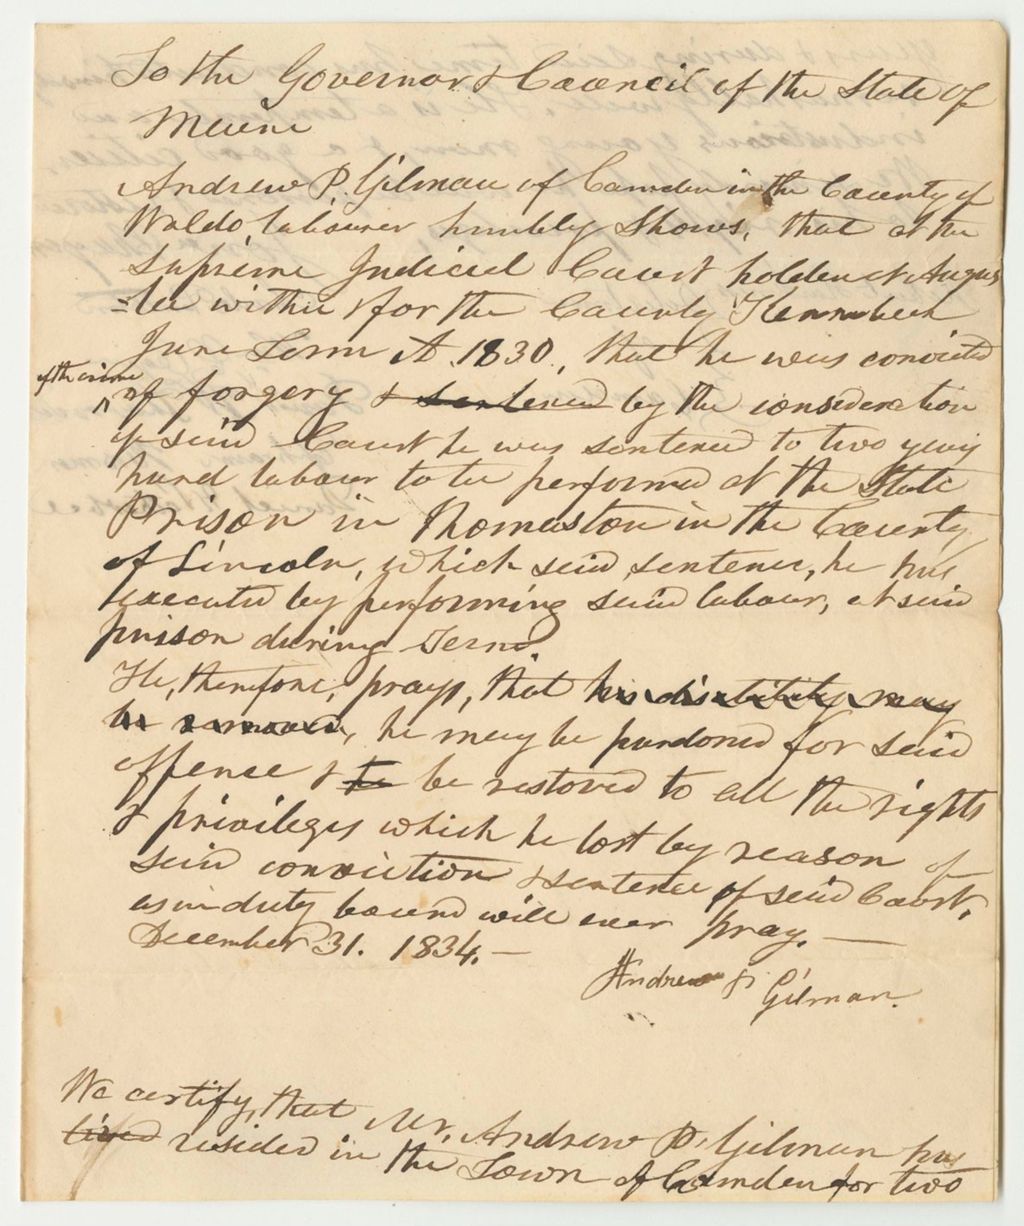 To the Governor & Council of the State of
Maine
Andrew P. Gilman of Camden in the County of
Waldo, labourer humbly Shows, that at the
Supreme Judicial Court holden at Augus
=ta within & for the County Kennebeck
June Term A 1830, that he was convicted
of the crime
of forgery & sentenced by the consideration
of said Court he was sentenced to two years
hard labour to be performed at the State
Prison in Thomaston in the County
of Lincoln, which said sentence, he has
executed by performing said labour, at said
prison during Term.
He, therefore, prays, that his disability may
be removed, he may be pardoned for said
offence & to be restored to all the rights
& privileges which he lost by reason of
said conviction & sentence of said Court,
as in duty bound will ever pray. —
December 31. 1834. —
Andrew P
Gilman.
We certify, that Mr. Andrew P. Gilman has
lived resided in the Town of Camden for two